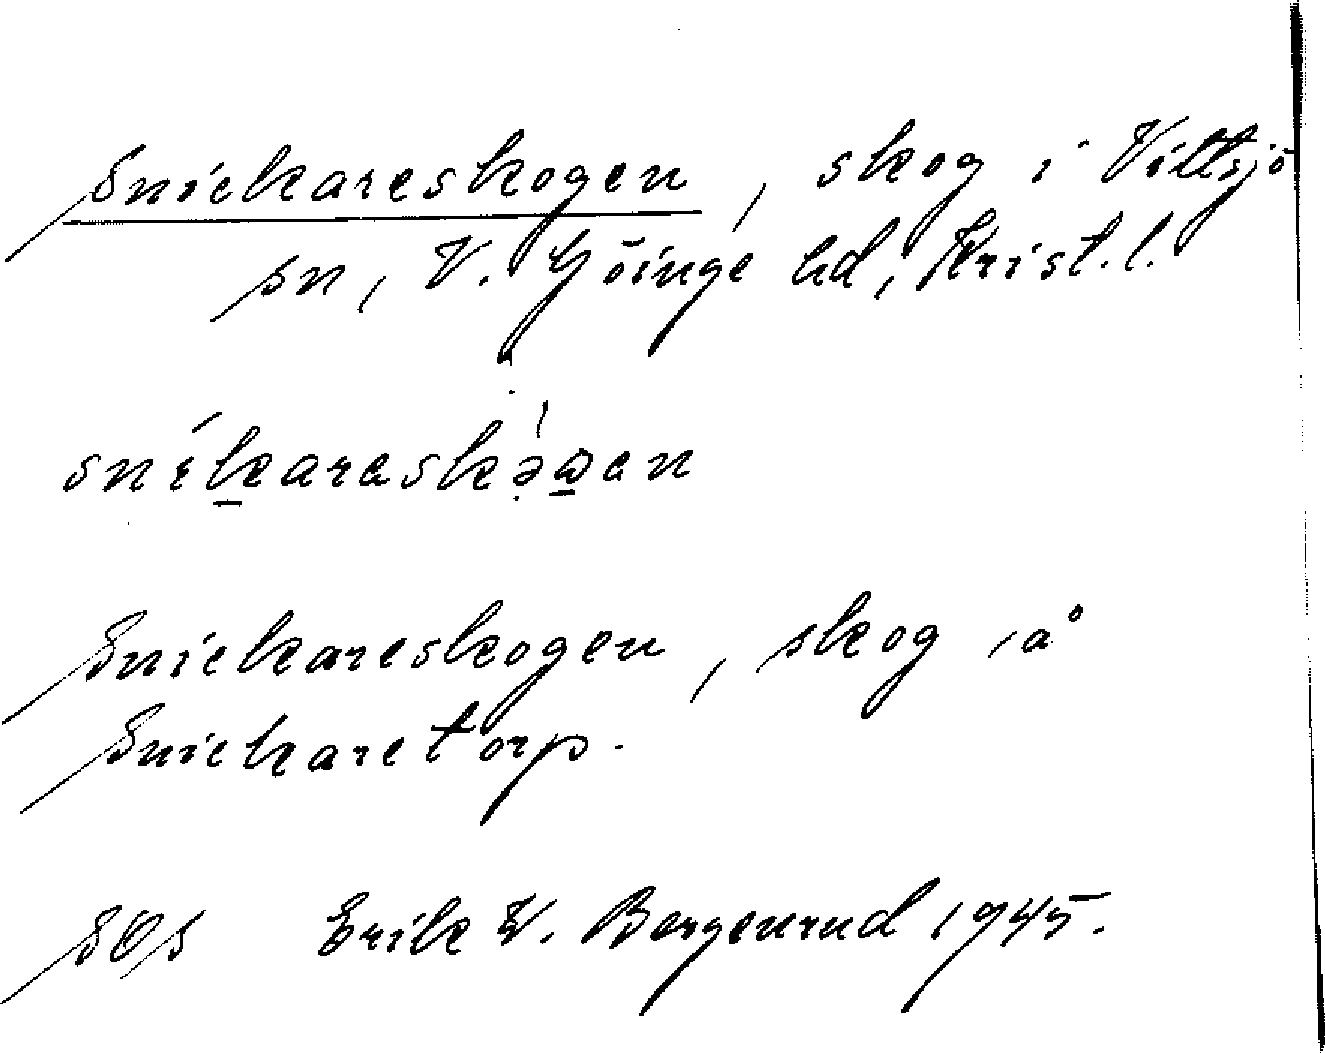 Snickareskogen, skog i Vittsjö
sn, V. Göinge hd, Krist. l.
Snickareskogen, skog å
Snickaretorp.
SOS Erik W. Bergenrud 1945.